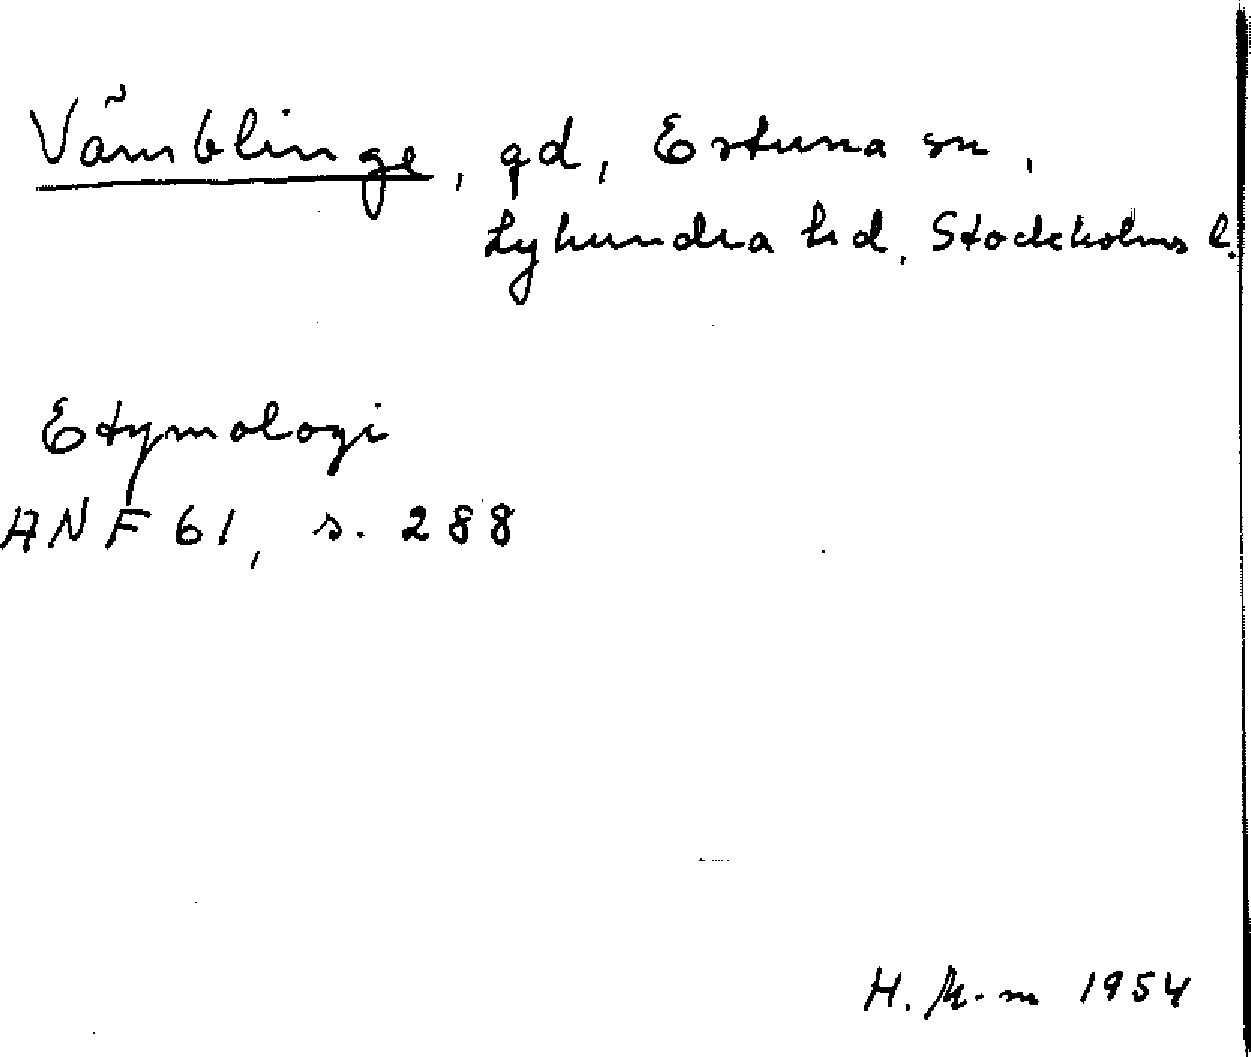 Vämblinge, gd, Estuna sn,
Lyhundra hd, Stockholms l.
Etymologi
ANF 61, s. 288
H. M-m 1954